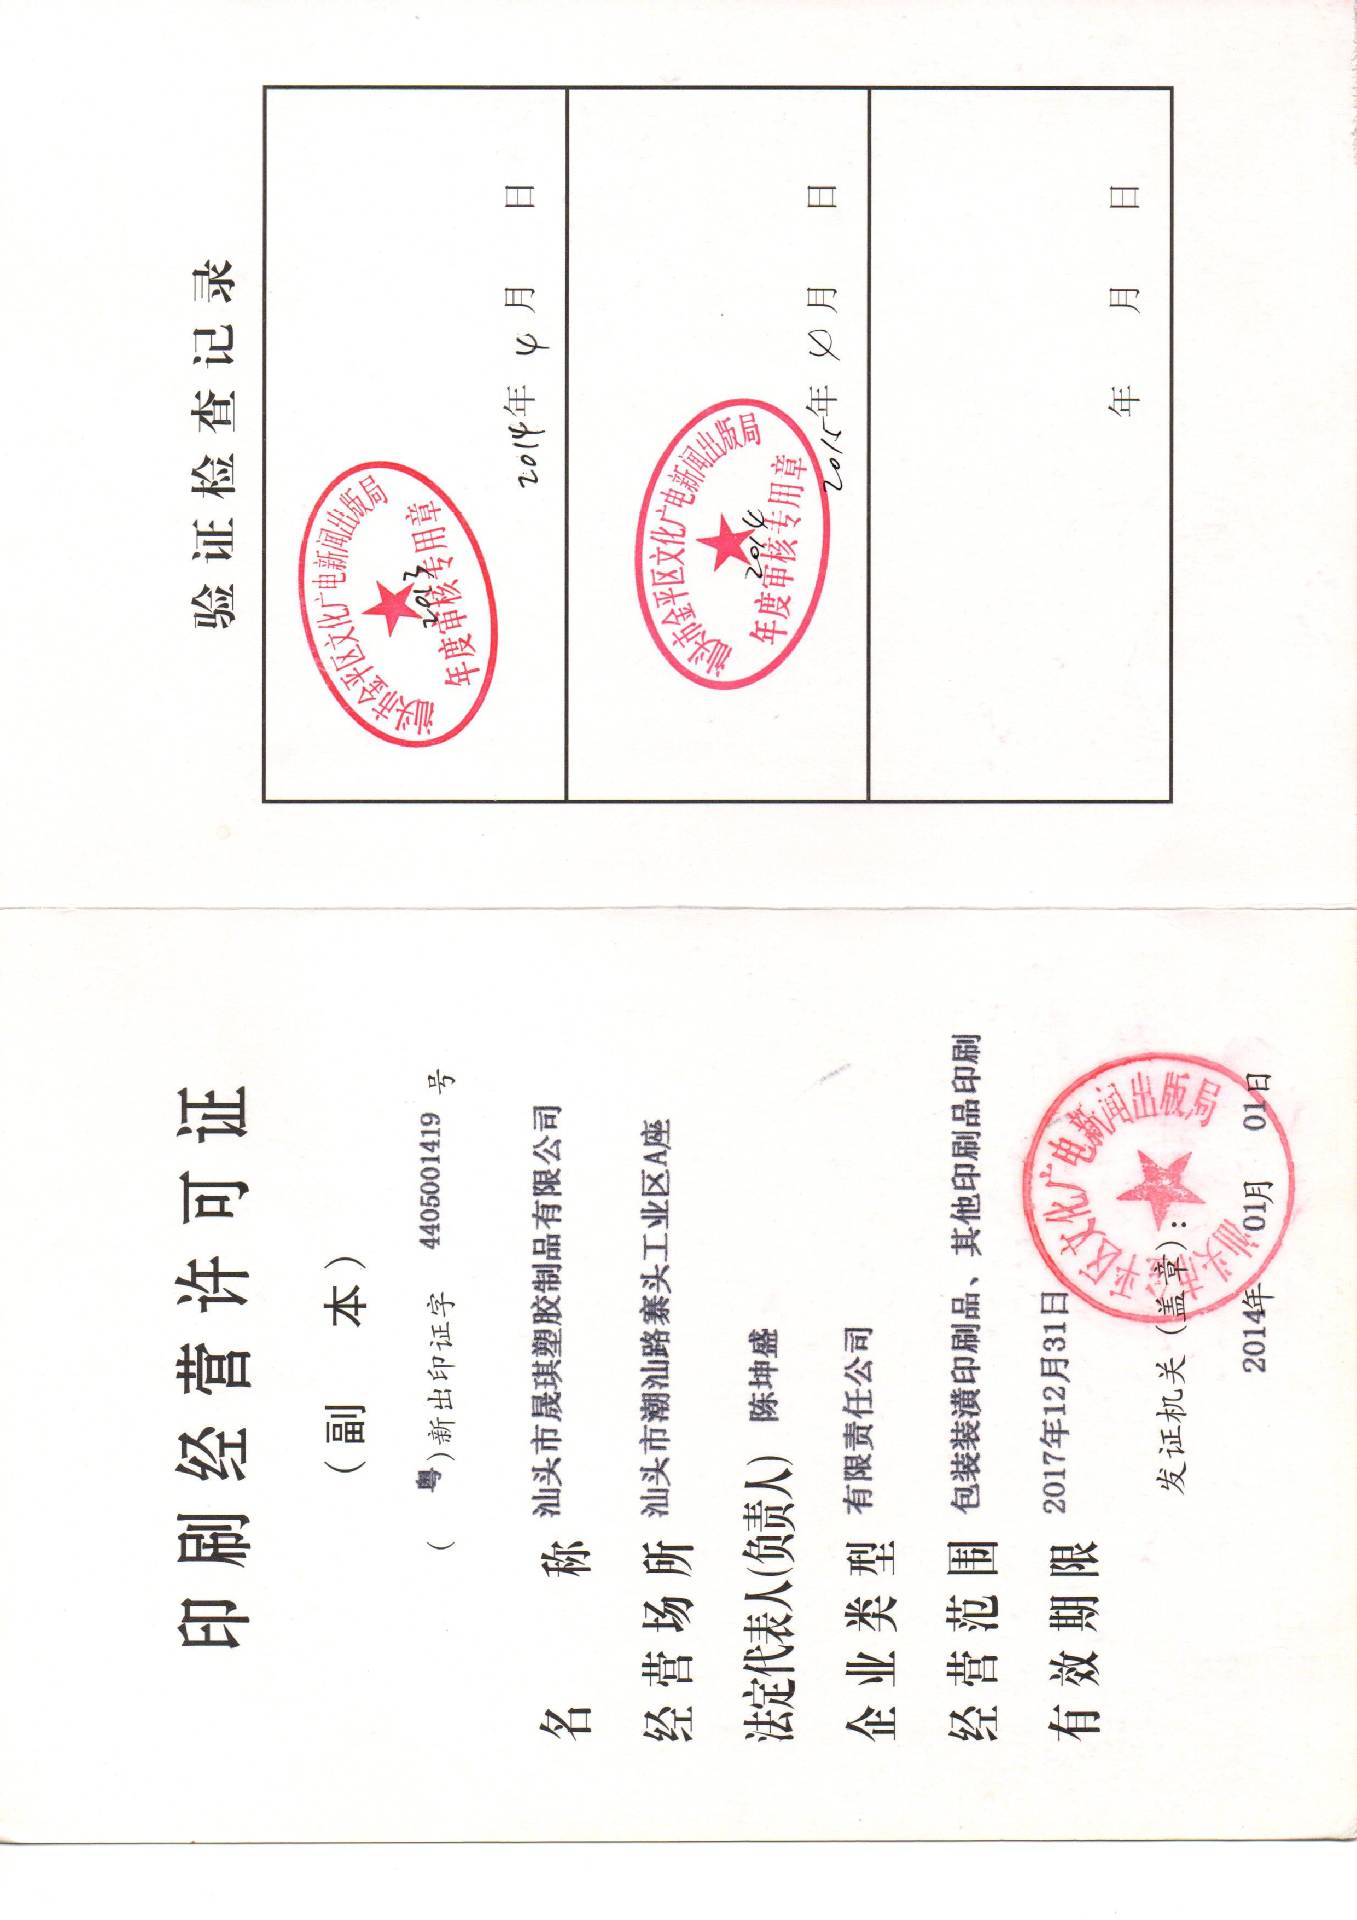 印刷经营许可证
（副 本）
（ 粤）新出印证字 4405001419 号
名 称 汕头市晟琪塑胶制品有限公司
经营场所 汕头市潮汕路寨头工业区A座
法定代表人(负责人) 陈坤盛
企业类型 有限责任公司
经营范围 包装装潢印刷品、其他印刷品印刷
有效期限 2017年12月31日
发证机关（盖章）：
汕头市金平区文化广电新闻出版局
2014年 01月 01日
验证检查记录
汕头市金平区文化广电新闻出版局
2013
年度审核专用章
2014年 4 月 日
汕头市金平区文化广电新闻出版局
2014
年度审核专用章
2015年 4 月 日
年 月 日